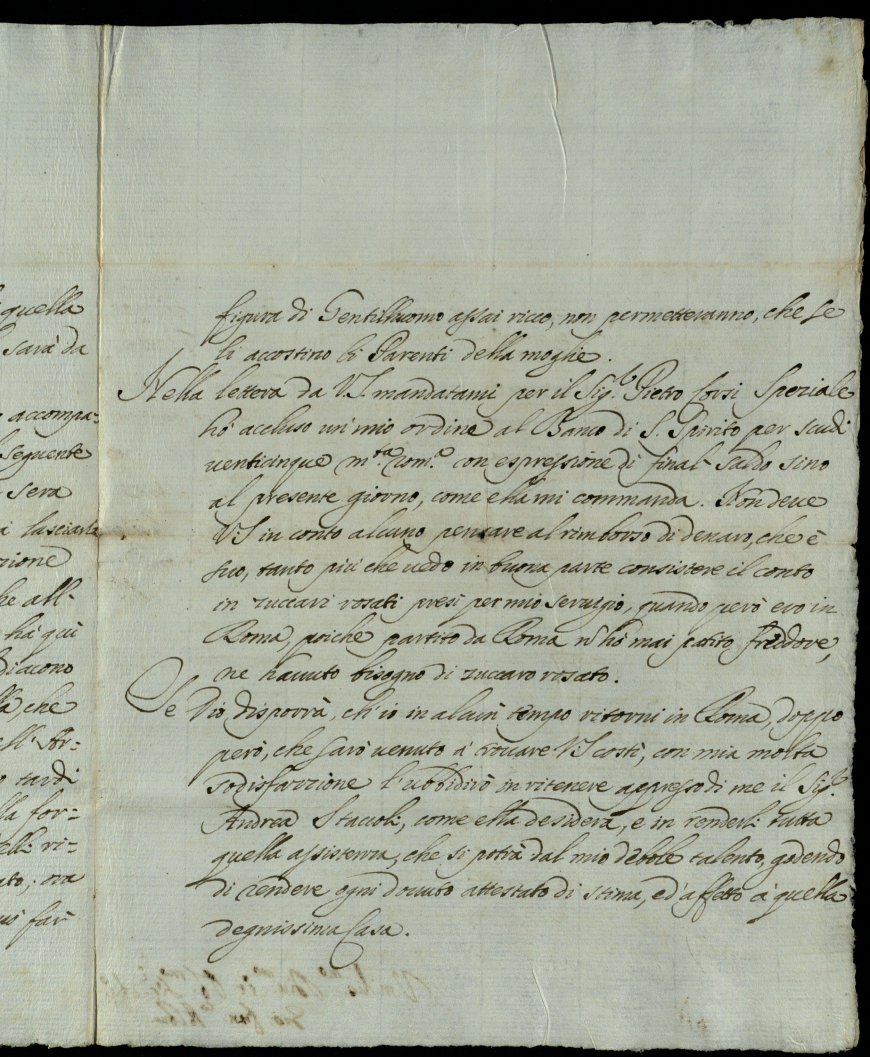 quella
sarà da
accompa=
seguente
sera
lasciarla
zione
he all-
hà qui
Diacono
che
ell' Ar=
tardi
lla for=
elli ri=
ato; ora
far
figura di Gentilhuomo assai ricco, non permetteranno, che se
li accostino li Parenti della moglie.
Nella lettera da V.S. mandatami per il Sig.r Pietro Corsi Speziale
hò accluso un' mio ordine al Banco di S. Spirito per scudi
venticinque m.ta rom.a con espressione di final Saldo sino
al presente giorno, come ella mi commanda. Non deve
V.S. in conto alcuno pensare al rimborso di denaro, che è
suo, tanto più che vedo in buona parte consistere il conto
in zuccari rosati presi per mio servizio, quando però ero in
Roma, poiche partito da Roma n' hò mai patito freddore,
ne havuto bisogno di zuccaro rosato.
Se Dio disporrà, ch' io in alcun tempo ritorni in Roma, doppo
però, che sarò venuto à trovare V.S. costì, con mia molta
sodisfazzione l' ubbidirò in ritenere appresso di me il Sig.r
Andrea Staccoli, come ella desidera, e in renderli tutta
quella assistenza, che si potrà dal mio debole talento, godendo
di rendere ogni dovuto attestato di stima, ed' affetto à quella
degnissima Casa.